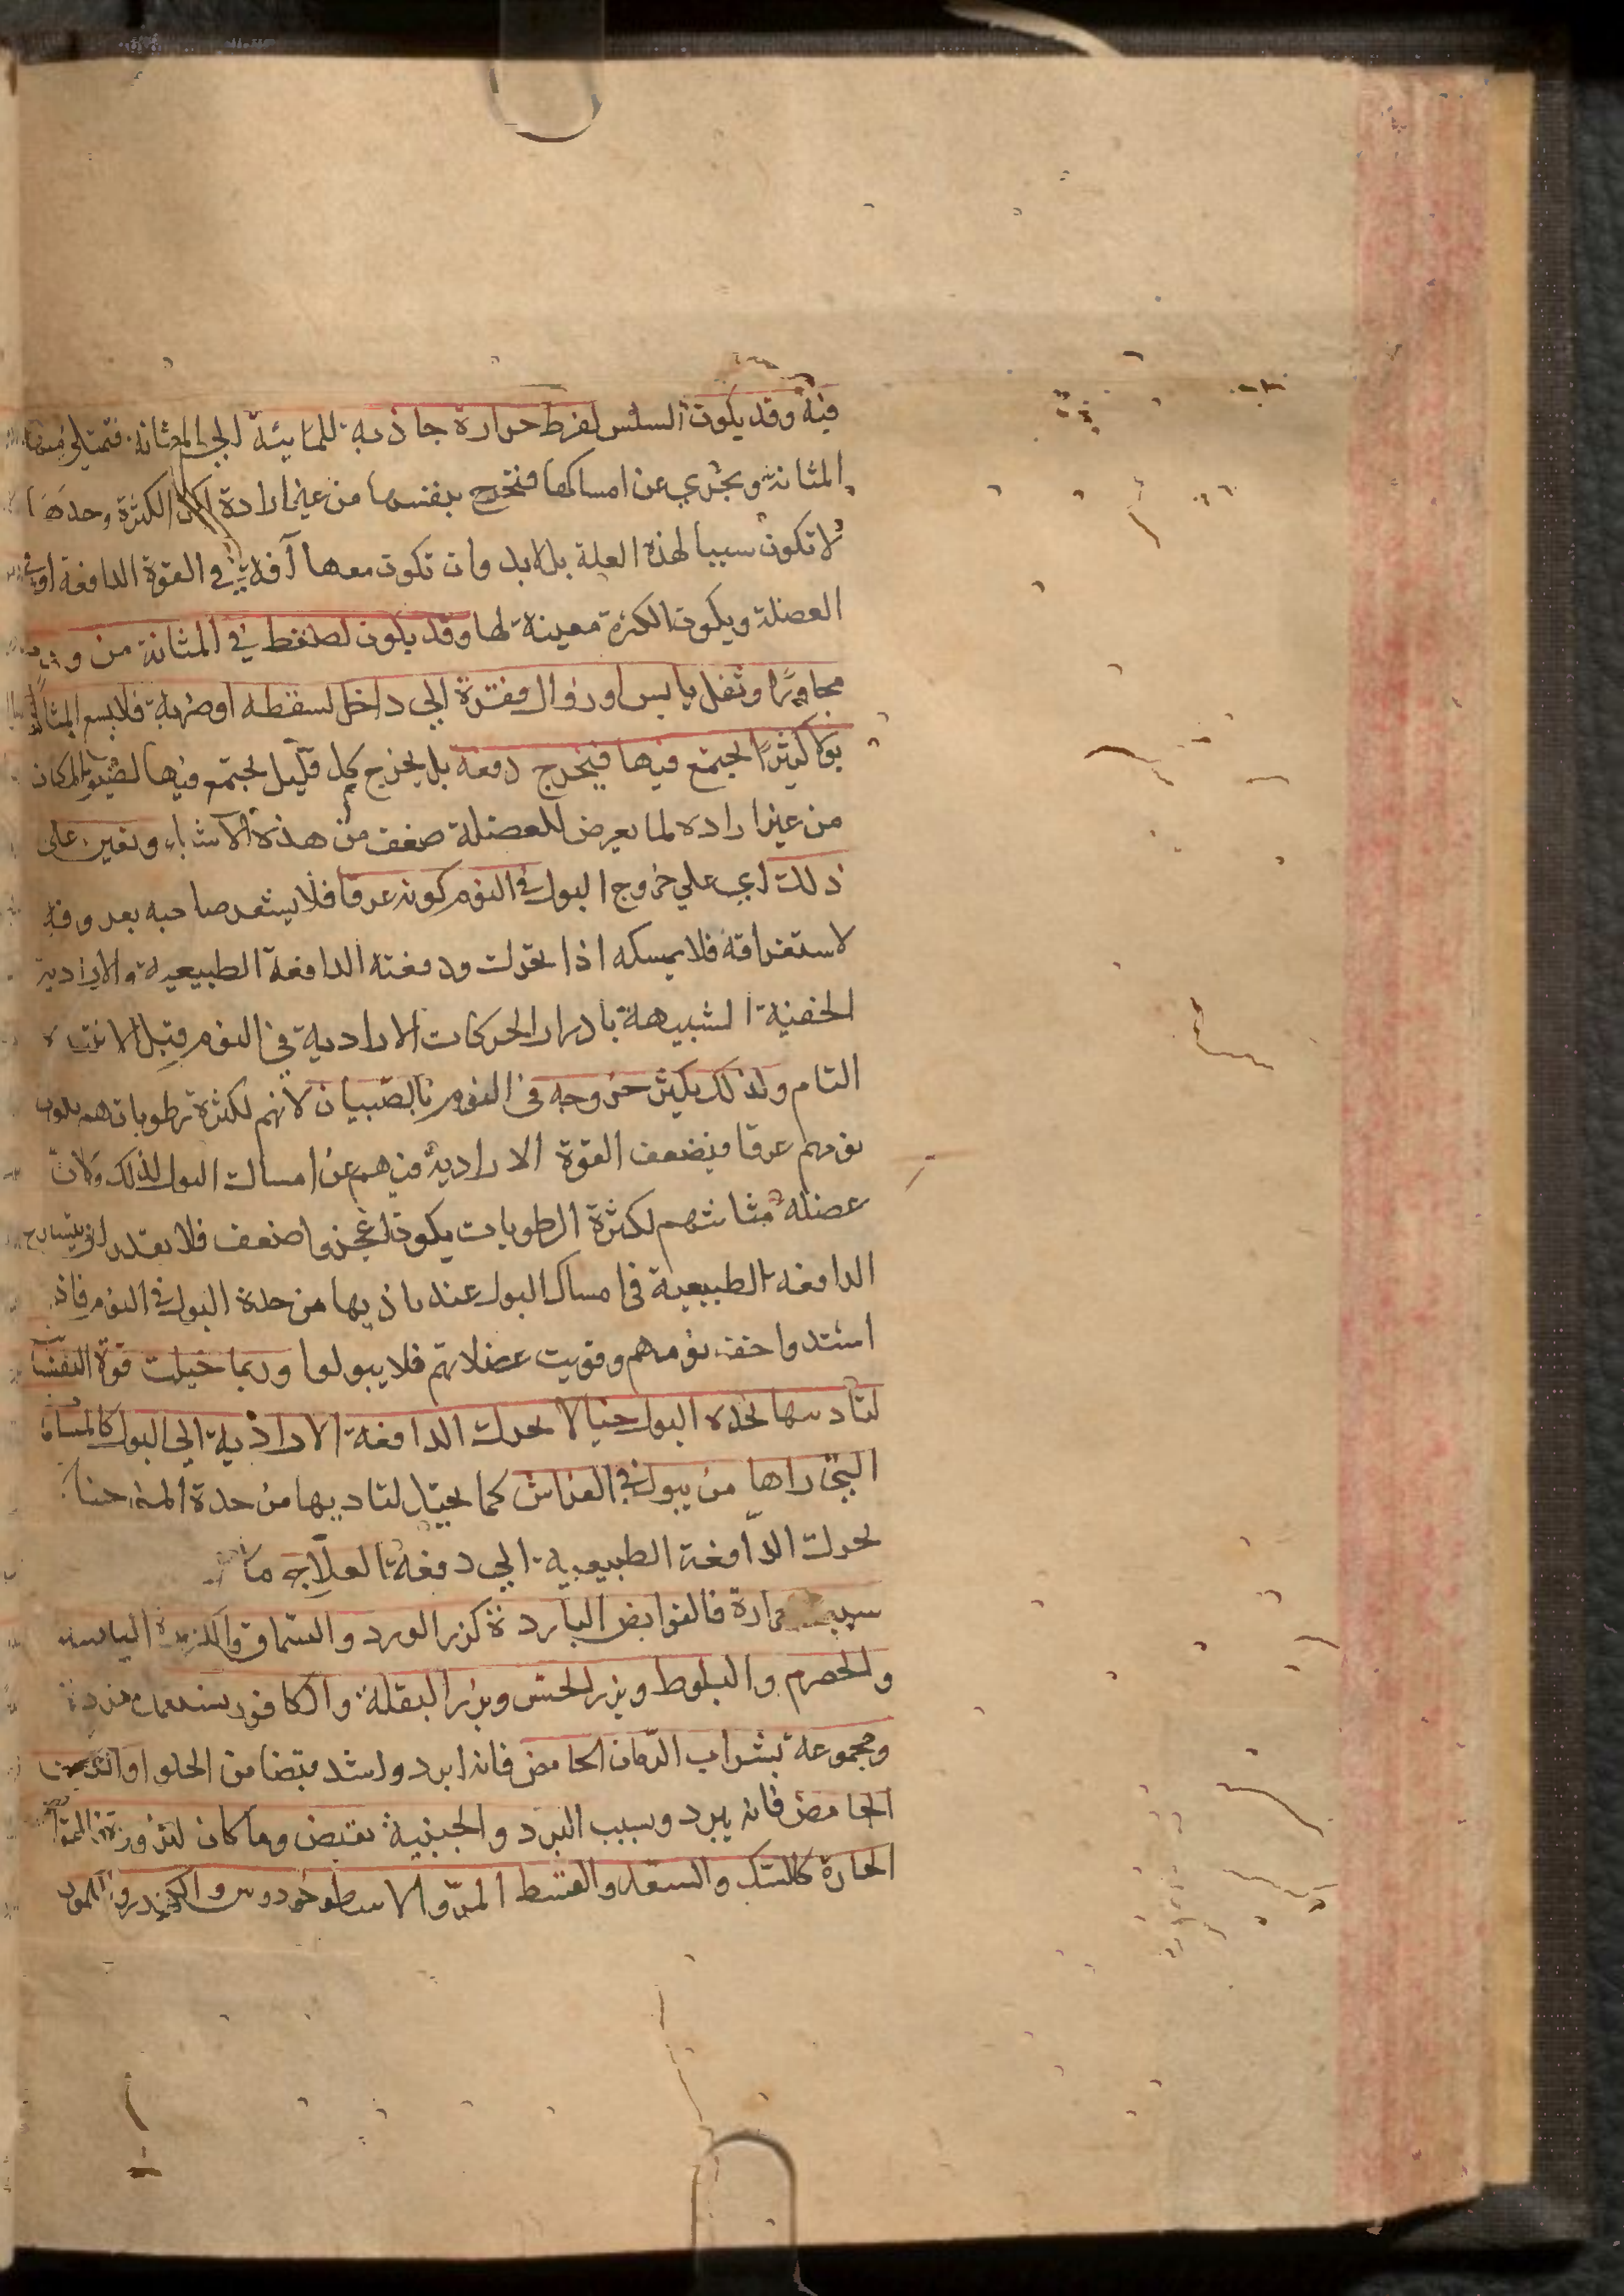 فيه وقد يكون السلس لفرط حرارة جاذبه للمائية الى المثانة فتمتلى منها
المثانة ويجزي عن امساكها فتخرج بنفسها من غير ارادة لكن الكثرة وحدها
لا تكون سببا لهذه العلة بل لابد وان تكون معها آفة في القوة الدافعة او في
العضلة ويكون الكثرة معينة لها وقد يكون لضغط في المثانة من
مجاورا وثفل يابس او زوال فقرة الى داخل لسقطه او ضربة فلا يسع المثانة
بولا كثيرا يجتمع فيها فيخرج دفعة بل يخرج كل قليل يجتمع فيها لضيق المكان
من غير اراده لما يعرض للعضلة ضعف من هذه الاشياء ويعين على
ذلك اي على خروج البول في النوم كونه غرقا فلا يشعر صاحبه بعد وفه
لاستغراقه فلا يمسكه اذا تحركت ودفعته الدافعة الطبيعية والارادية
الخفية الشبيهة بادرار الحركات الارادية في النوم قبل الانتباه
التام ولذلك يكثر خروجه في النوم بالصبيان لانهم لكثرة رطوباتهم يكون
نومهم غرقا فيضعف القوة الارادية فيهم عن امساك البول لذلك ولان
عضلة مثانتهم لكثرة الرطوبات يكون اعجز واضعف فلا يقدر ان
الدافعه الطبيعية في امساك البول عند تاذيها من حدة البول في النوم فاذا
اشتدوا خف نومهم وقويت عضلاتهم فلا يبولوا وربما خيلت قوة النفس
لتاديها بحده البول خيالا يحرك الدافعة الارادية الى البول كالمنامات
التي راها من يبول في الفراش كما يخيل لتاديها من حدة المني خيالا
يحرك الدافعة الطبيعية الى دفعه العلاج ما كان
سببه حرارة فالقوابض الباردة كزر الورد والسماق والكزبرة اليابسه
والحصرم والبلوط وبزر الخس وبزر البقلة والكافور يستعمل مفردة
ومجموعة بشراب الرمان الحامض فانه ابرد واشد قبضا من الحلو او
الحامض فانه يبرد وسبب البرد والجبنية يقبض وما كان لبرودة
الحارة كالسك والسعد والقسط المر والاسطوخودوس والكندر